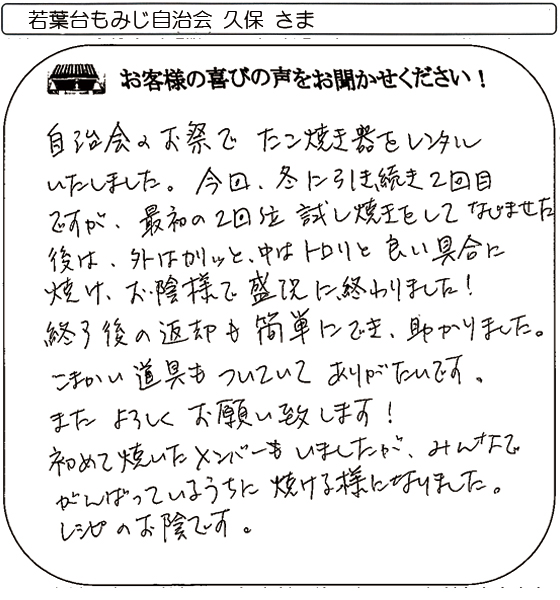 若葉台もみじ自治会 久保 さま
お客様の喜びの声をお聞かせください！
自治会のお祭で たこ焼き器をレンタル
いたしました。今回、冬に引き続き2回目
ですが、最初の2回位 試し焼きをして なじませた
後は、外はカリッと、中はトロリと 良い具合に
焼け、お陰様で 盛況に終わりました！
終了後の返却も 簡単にでき、助かりました。
こまかい 道具も ついていて ありがたいです。
また よろしく お願い致します！
初めて焼いたメンバーも いましたが、みんなで
がんばっているうちに 焼ける様になりました。
レシピのお陰です。